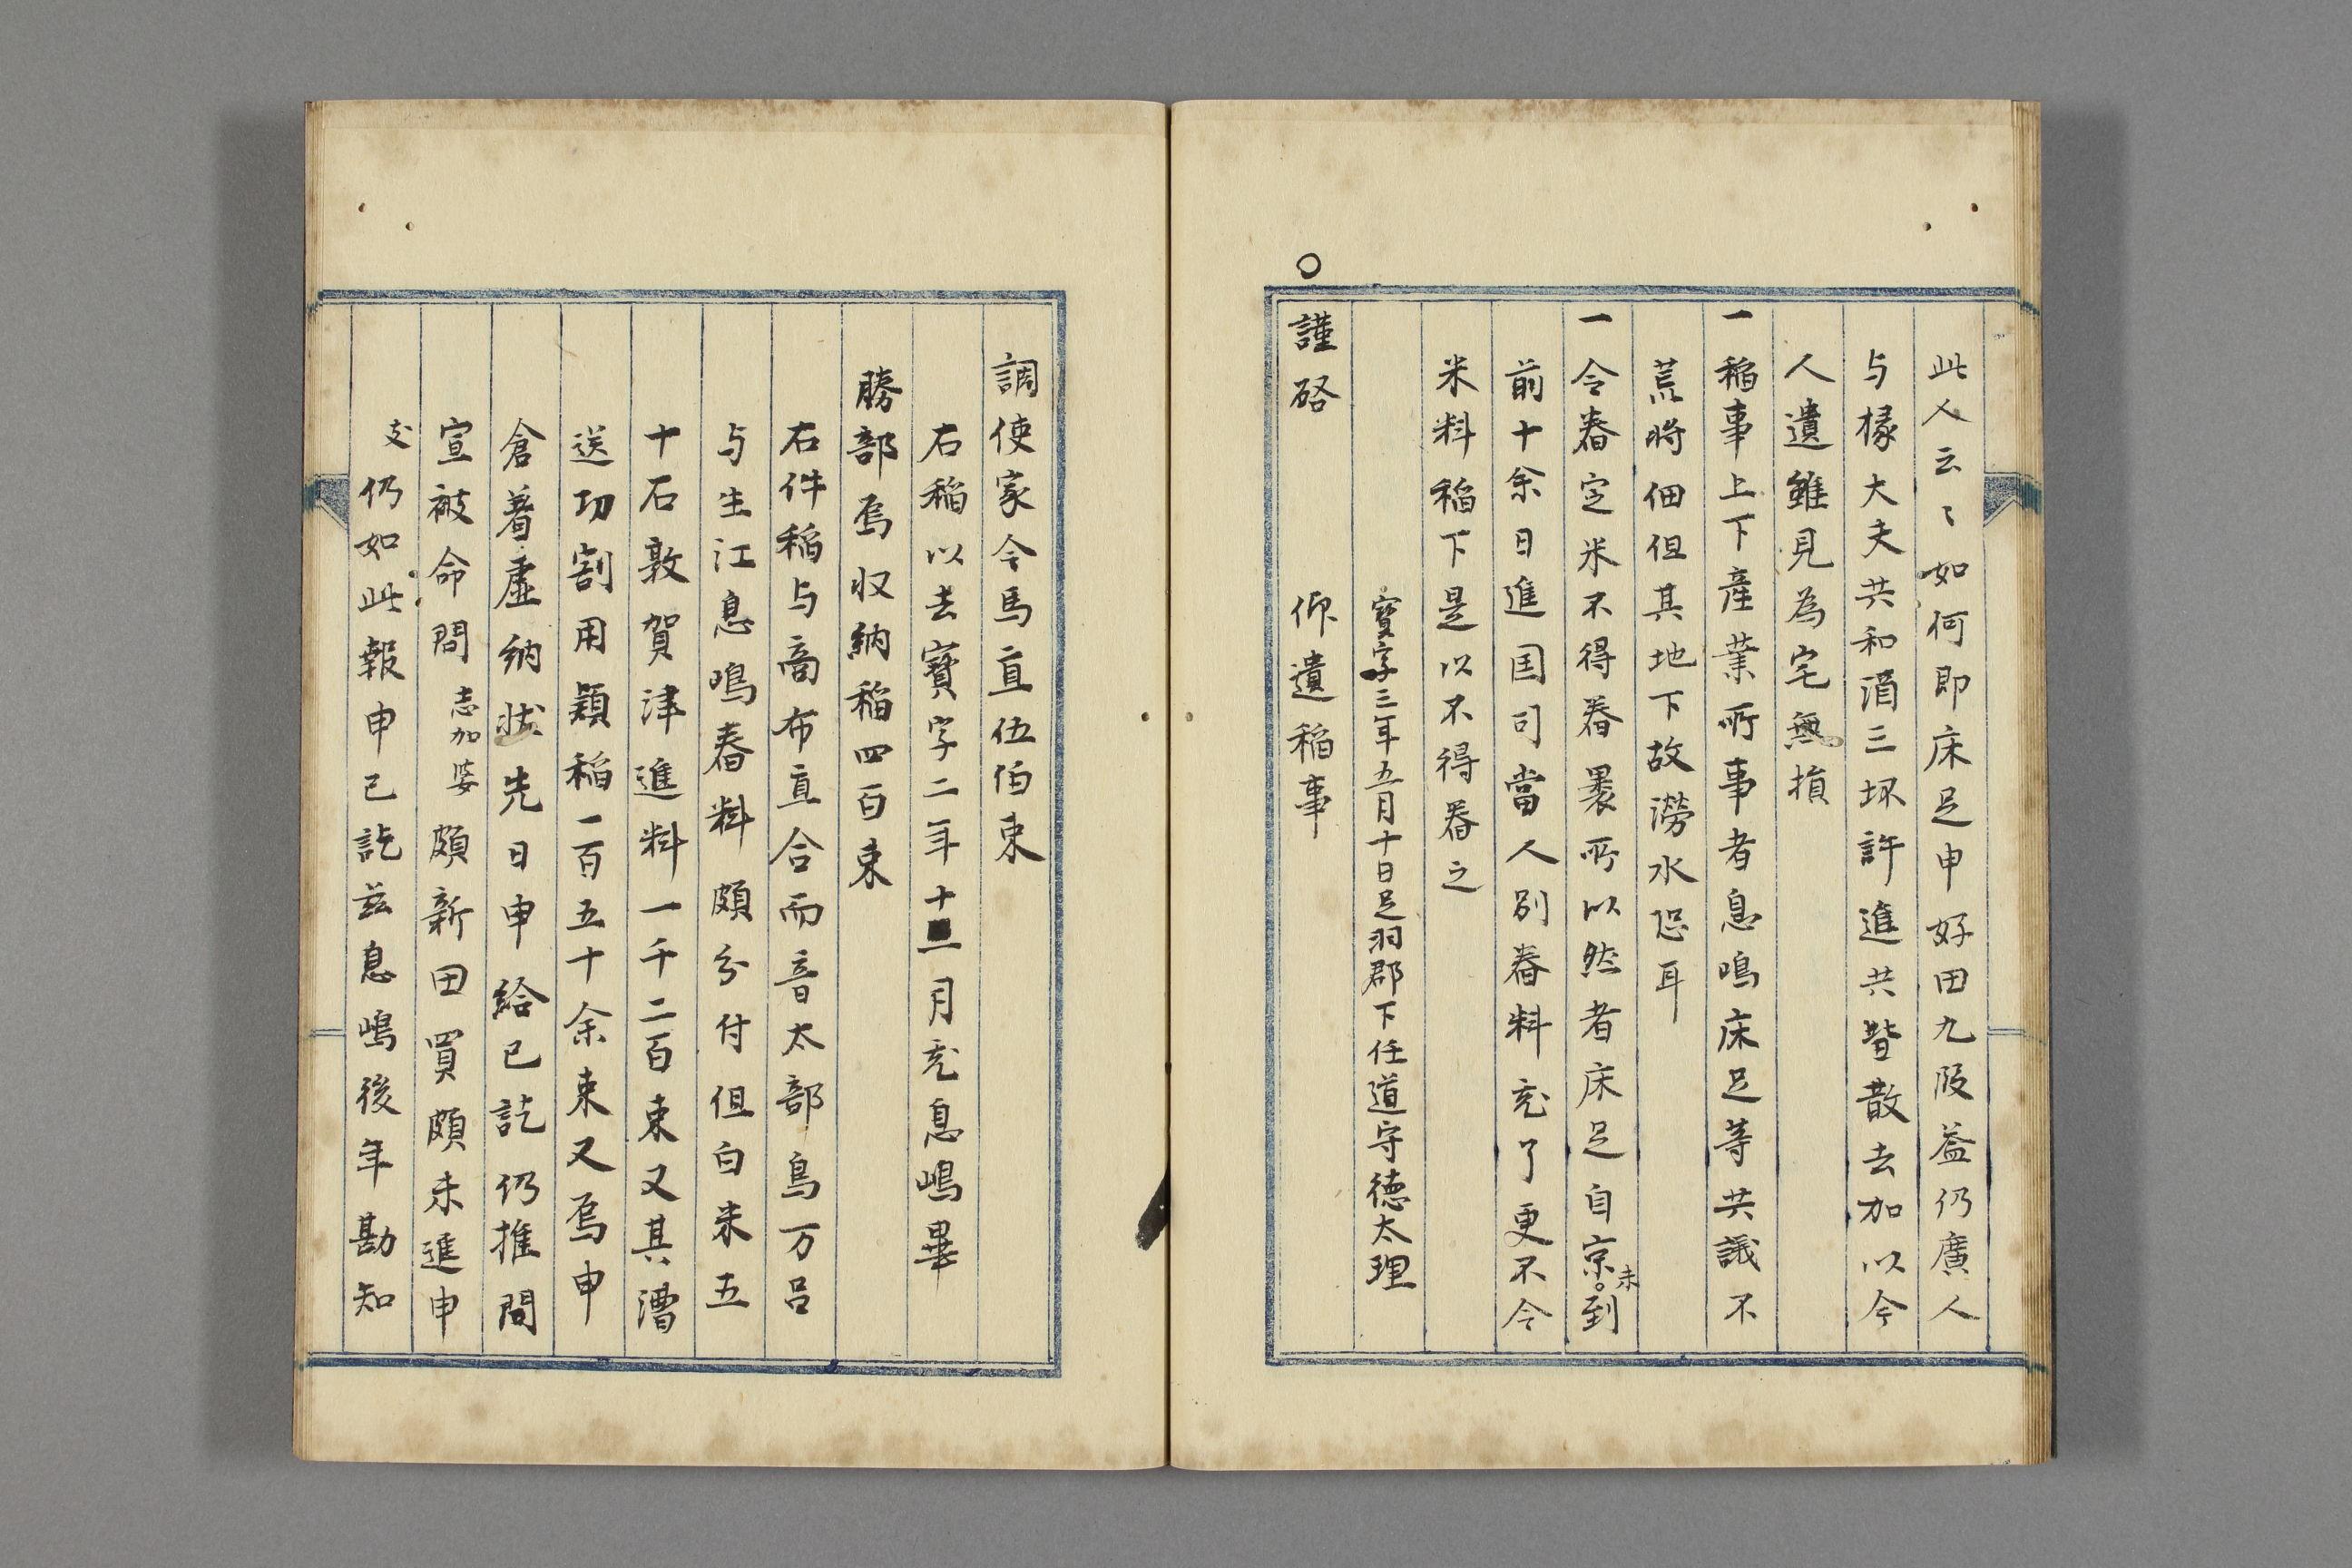 此人云々如何即床足申好田九段益仍廣人
与椽大夫共和酒三坏許進共皆散去加以今
人遺雖見為宅無損
一稲事上下産業所事者息嶋床足等共議不
荒將佃但其地下故澇水恐耳
一令舂定米不得舂畧所以然者床足自京未到
前十余日進国司當人別舂料充了更不令
米料稲下是以不得舂之
寶字三年五月十日足羽郡下任道守徳太理
○謹啓 仰遺稲事
調使家令馬直伍伯束
右稲以去寶字二年十二月充息嶋畢
勝部烏収納稲四百束
右件稲与商布直合而音太部鳥万呂
与生江息嶋舂料頗分付但白米五
十石敦賀津進料一千二百束又其漕
送功割用穎稲一百五十余束又烏申
倉着虚納状先日申給已訖仍推問
宣被命問志加婆頗新田買頗未進申
支仍如此報申已訖茲息嶋後年勘知